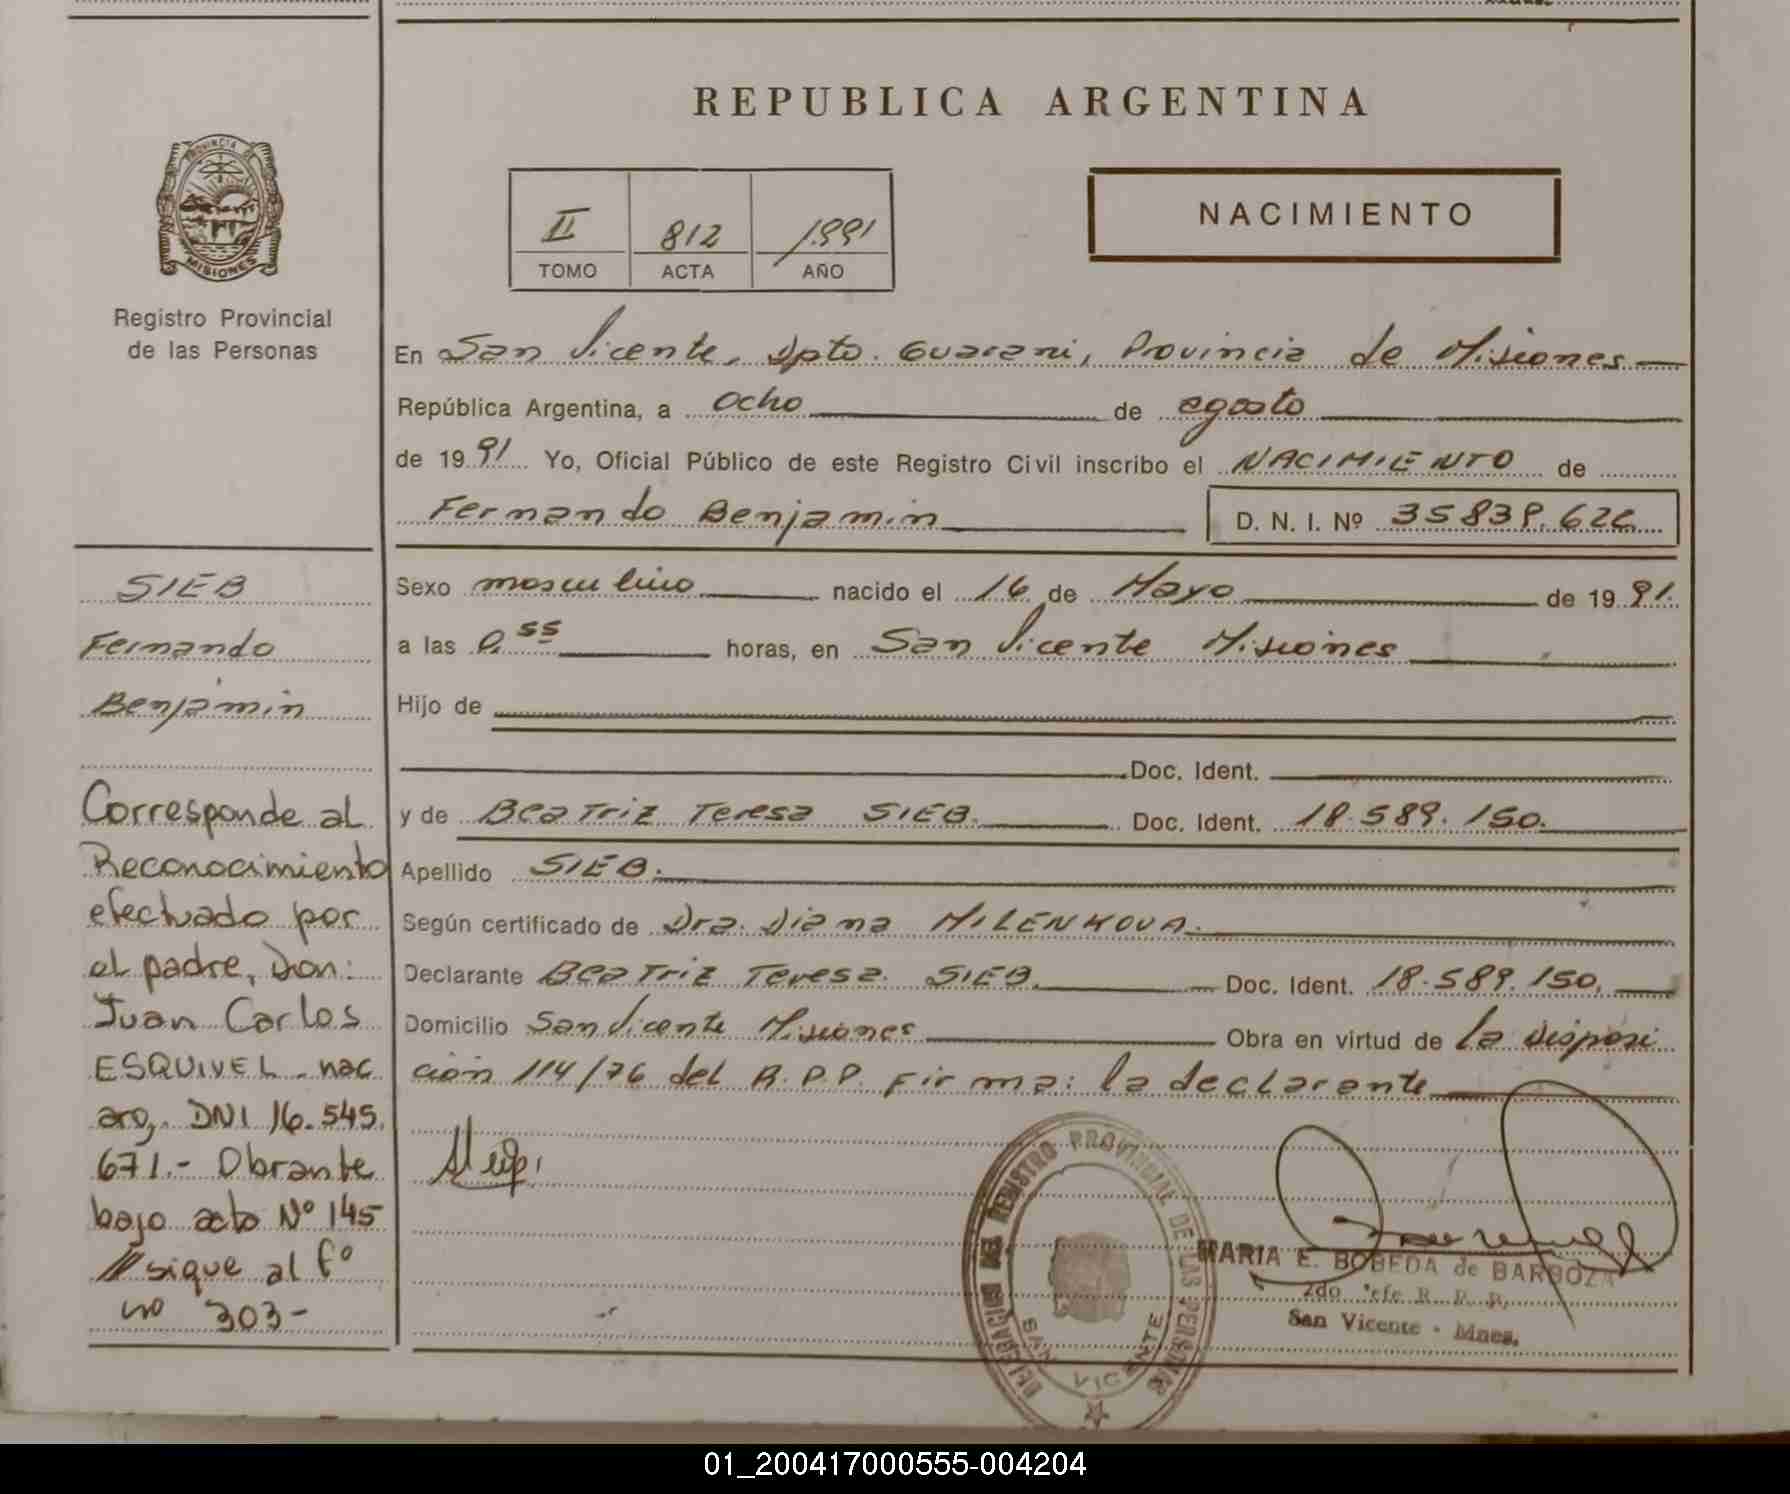 REPUBLICA ARGENTINA
PROVINCIA DE
MISIONES
Registro Provincial
de las Personas
II 812 1991
TOMO ACTA AÑO
NACIMIENTO
En San Vicente, Dpto. Guarani, Provincia de Misiones
República Argentina, a ocho de agosto
de 1991 Yo, Oficial Público de este Registro Civil inscribo el NACIMIENTO de
Fernando Benjamin D. N. I. Nº
Sexo masculino nacido el 16 de Mayo de 1991.
a las 55 horas, en San Vicente Misiones
Hijo de
Doc. Ident.
y de Beatriz Teresa SIEB. Doc. Ident. 18.589.150.
Apellido SIEB.
Según certificado de Dra. Diana MILENKOVA.
Declarante Beatriz Teresa SIEB. Doc. Ident. 18.589.150.
Domicilio San Vicente Misiones Obra en virtud de la disposi
ción 114/76 del R.P.P. Firma: la declarante
SIEB
Fernando
Benjamin
Corresponde al
Reconocimiento
efectuado por
el padre, Don:
Juan Carlos
ESQUIVEL - nac
arg. DNI 16.545.
671.- Obrante
bajo acta Nº 145
// sigue al fº
nº 303-
DELEGACION DEL REGISTRO PROVINCIAL DE LAS PERSONAS
SAN VICENTE
MARIA E. BOBEDA de BARBOZA
2do Jefe R. P. P.
San Vicente - Mnes.
01_200417000555-004204